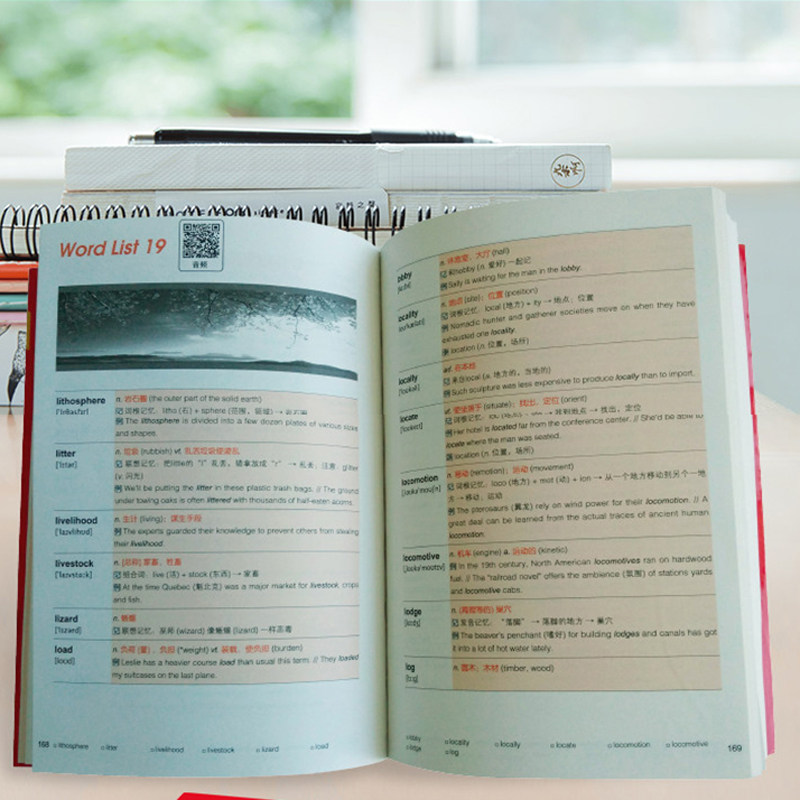 Word List 19
音频
lithosphere n. 岩石圈 (the outer part of the solid earth)
记 词根记忆：litho (石) + sphere (范围，领域) → 岩石圈
例 The lithosphere is divided into a few dozen plates of various sizes
and shapes.
litter n. 垃圾 (rubbish) vt. 乱丢垃圾使凌乱
(v. 闪光)
例 We'll be putting the litter in these plastic trash bags. // The ground
under towing oaks is often littered with thousands of half-eaten acorns.
livelihood n. 生计 (living)；谋生手段
例 The experts guarded their knowledge to prevent others from stealing
their livelihood.
livestock n. [总称] 家畜，牲畜
记 组合词：live (活) + stock (东西) → 家畜
例 At the time Quebec (魁北克) was a major market for livestock, crops
and fish.
lizard n. 蜥蜴
记 联想记忆：巫师 (wizard) 像蜥蜴 (lizard) 一样恶毒
load n. 负荷 (量)，负担 (*weight) vt. 装载，使负担 (burden)
[loud]
例 Leslie has a heavier course load than usual this term. // They loaded
my suitcases on the last plane.
168 lithosphere litter livelihood livestock lizard load
lobby n. 休息室，大厅 (hall)
记 和hobby (n. 爱好) 一起记
例 Sally is waiting for the man in the lobby.
locality n. 地点 (site)；位置 (position)
记 词根记忆：local (地方) + ity → 地点；位置
例 Nomadic hunter and gatherer societies move on when they have
exhausted one locality.
派 location (n. 位置，场所)
locally ad. 在本地
记 来自local (a. 地方的，当地的)
例 Such sculpture was less expensive to produce locally than to import.
locate vt. 使坐落于 (situate)；找出，定位 (orient)
例 Her hotel is located far from the conference center. // She'd be able to
locate where the man was seated.
派 location (n. 位置，场所)
locomotion n. 移动 (remotion)；运动 (movement)
记 词根记忆：loco (地方) + mot (动) + ion → 从一个地方移动到另一个地
方 → 移动，运动
例 The pterosaurs (翼龙) rely on wind power for their locomotion. // A
great deal can be learned from the actual traces of ancient human
locomotion.
locomotive n. 机车 (engine) a. 运动的 (kinetic)
例 In the 19th century, North American locomotives ran on hardwood
fuel. // The "railroad novel" offers the ambience (氛围) of stations yards
and locomotive cabs.
lodge n. (海狸等的) 巢穴
记 发音记忆："落脚" → 落脚的地方 → 巢穴
例 The beaver's penchant (嗜好) for building lodges and canals has got
it into a lot of hot water lately.
log n. 圆木，木材 (timber, wood)
lobby locality locally locate locomotion locomotive
lodge log
169